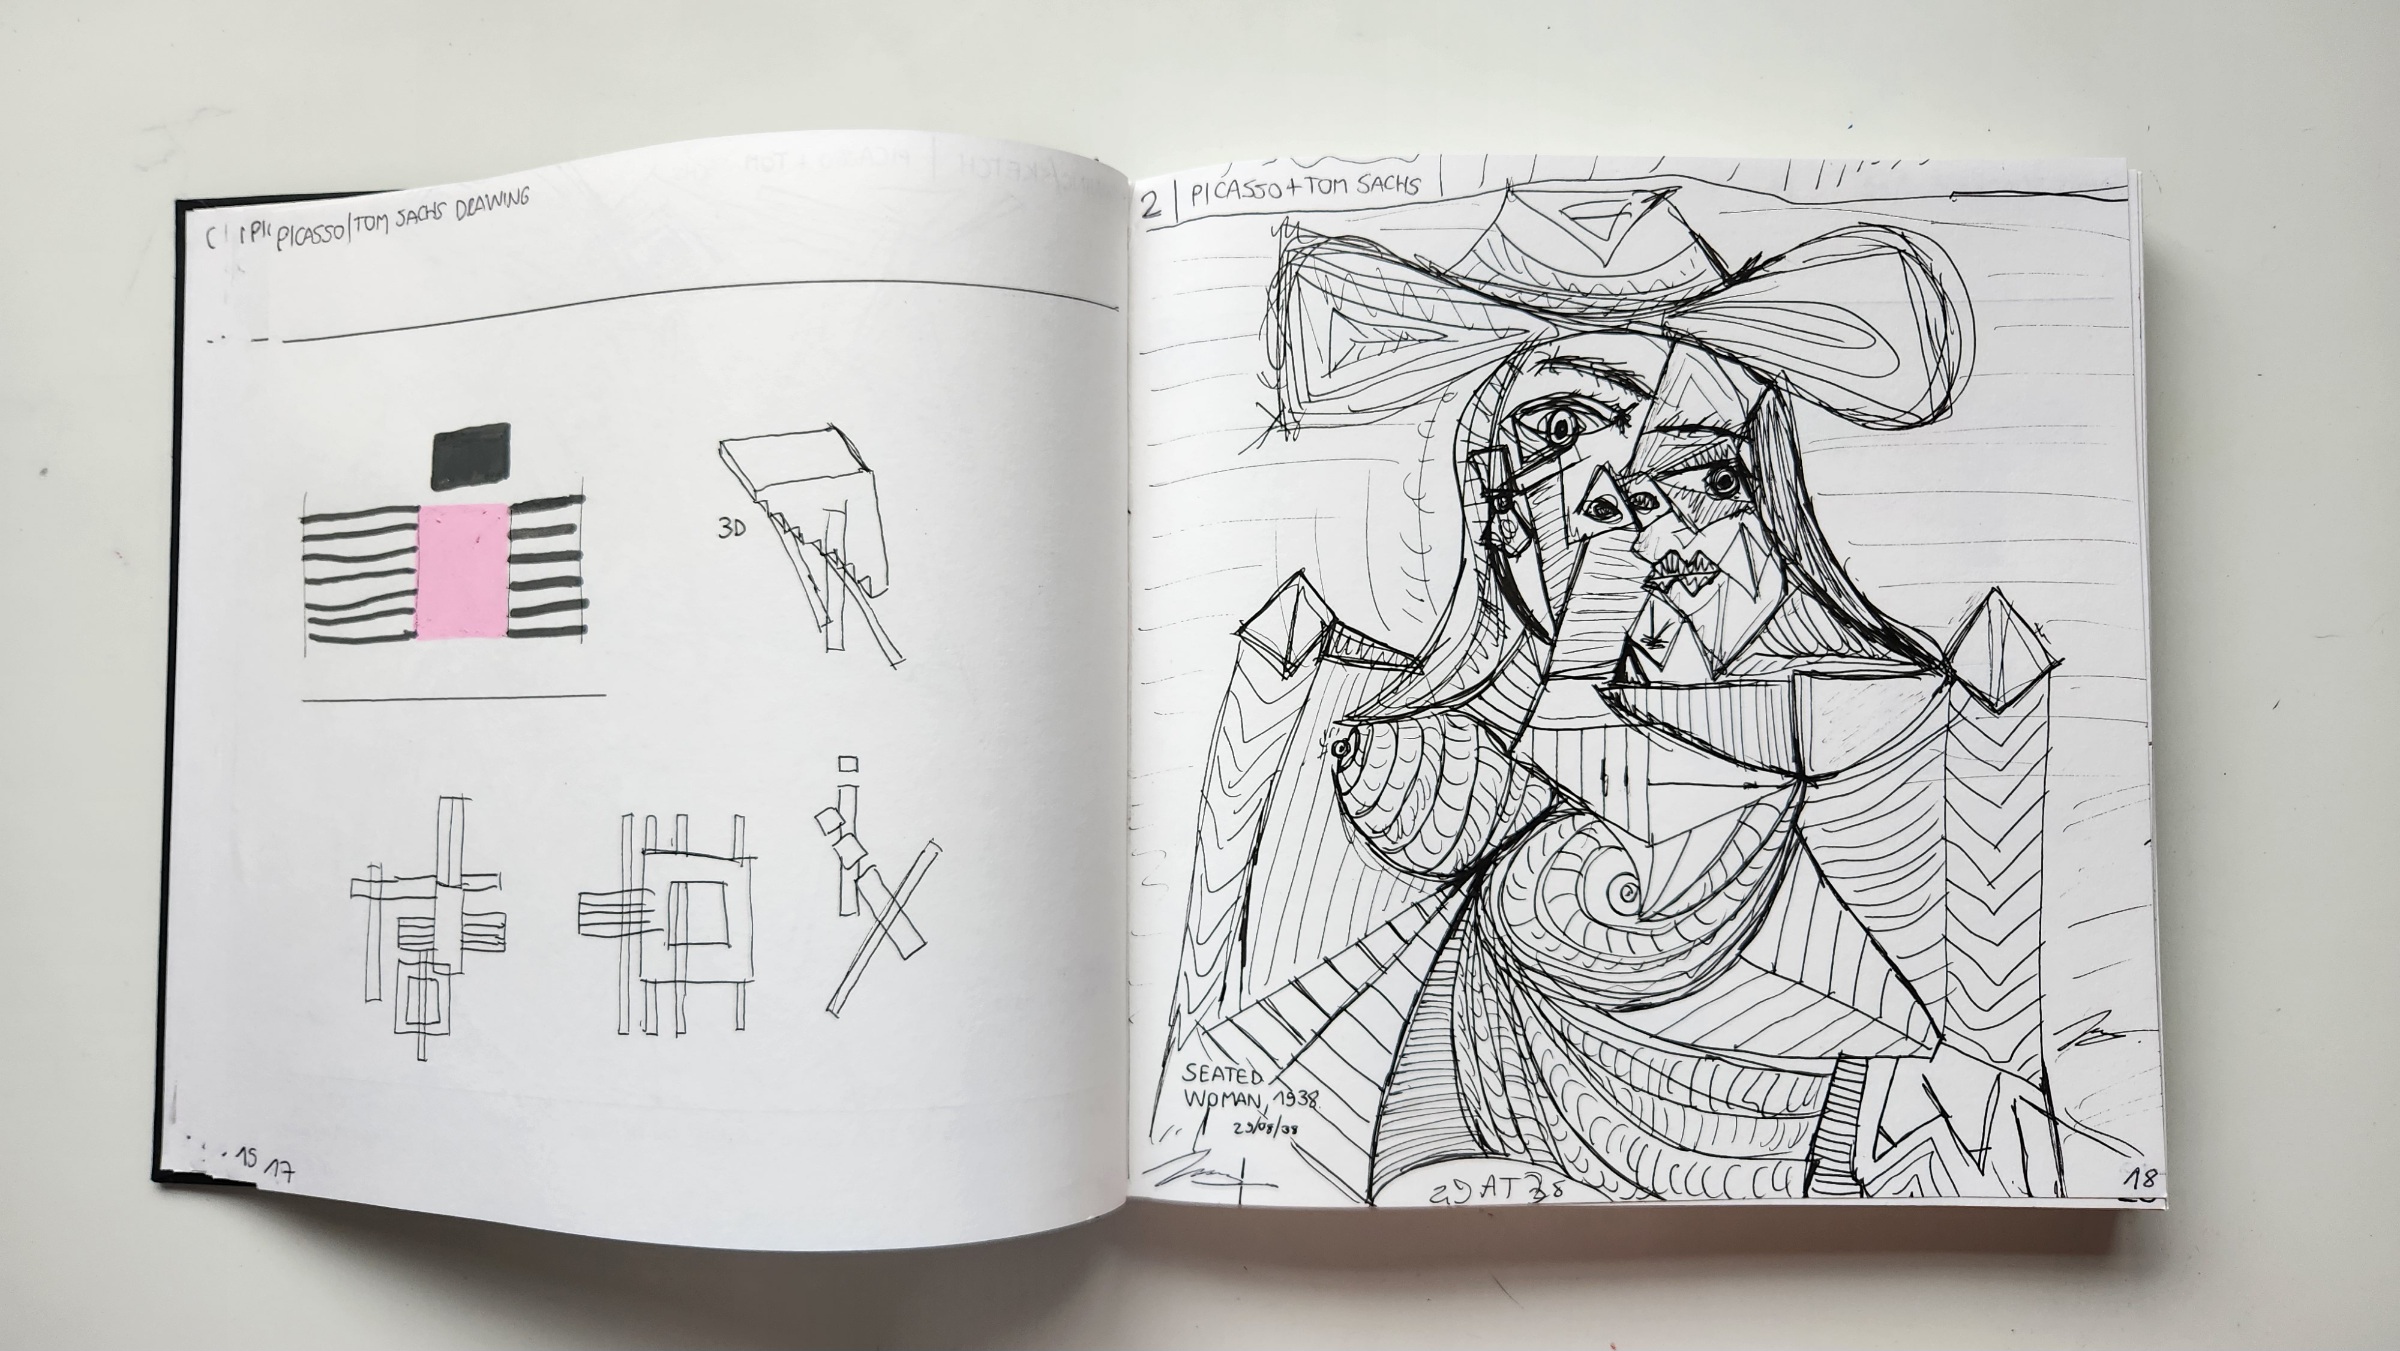 PICASSO/TOM SACHS DRAWING
3D
15 17
2 | PICASSO + TOM SACHS
SEATED
WOMAN, 1938
29/08/38
18